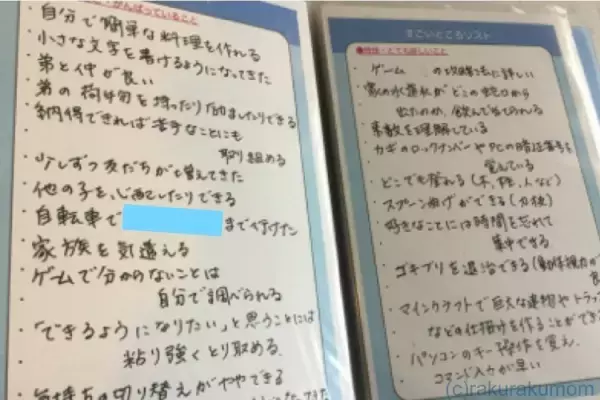 ・がんばっていること
・自分で簡単な料理を作れる
・小さな文字を書けるようになってきた
・弟と仲が良い
・弟の荷物を持ったり励ましたりできる
・納得できれば苦手なことにも
取り組める
・少しずつ友だちが増えてきた
・他の子を心配したりできる
・自転車で
まで行けた
・家族を気遣える
・ゲームで分からないことは
自分で調べられる
・「できるようになりたい」と思うことには
粘り強くとり組める
・気持ちの切り替えがややできる
すごいところリスト
●特技・とても詳しいこと
・ゲーム の攻略法に詳しい
・家の水道水がどこの蛇口から
出たのか、飲んで当てられる
・素数を理解している
・カギのロックナンバーやPCの暗証番号を
覚えている
・どこでも登れる(木、柱、人など)
・スプーン曲げができる(力技)
・好きなことには時間を忘れて
集中できる
・ゴキブリを退治できる(動体視力が
良
・マインクラフトで巨大な建物やトラップ
などの仕掛けを作ることができ
・パソコンのキー操作を覚え、
コマンド入力が早い
(c)rakurakumom